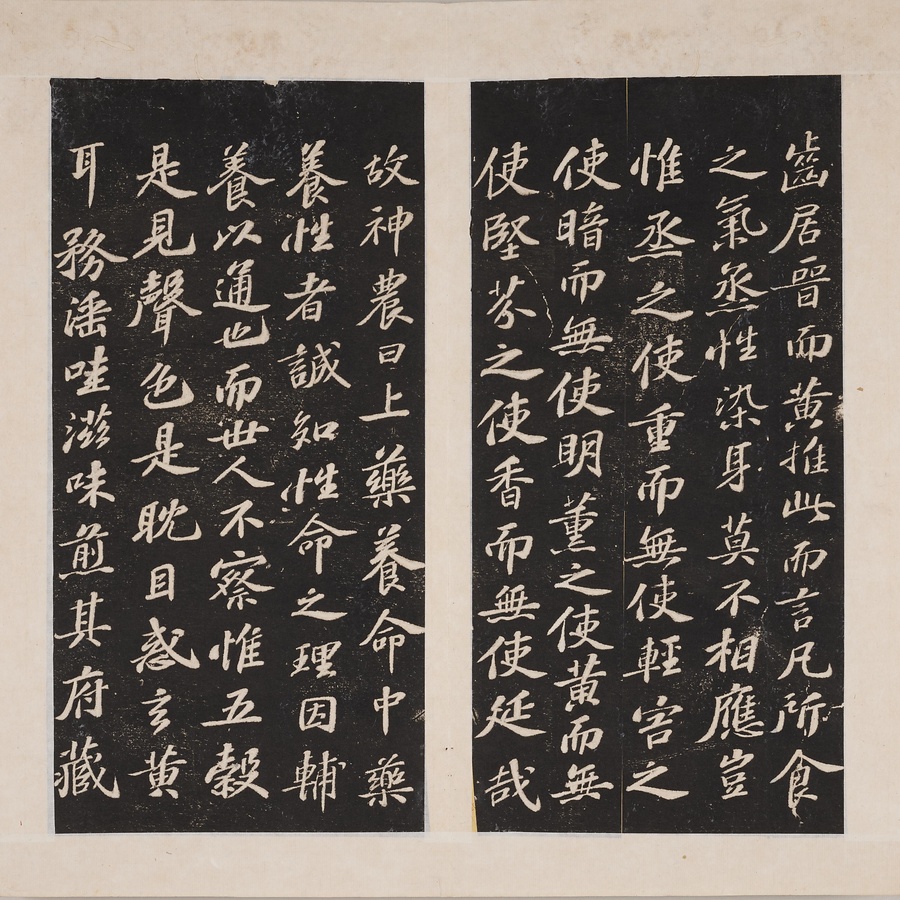 齒居晉而黃推此而言凡所食
之氣烝性染身莫不相應豈
惟烝之使重而無使輕害之
使暗而無使明薰之使黃而無
使堅芬之使香而無使延哉
故神農曰上藥養命中藥
養性者誠知性命之理因輔
養以通也而世人不察惟五穀
是見聲色是耽目惑玄黃
耳務滛哇滋味煎其府藏